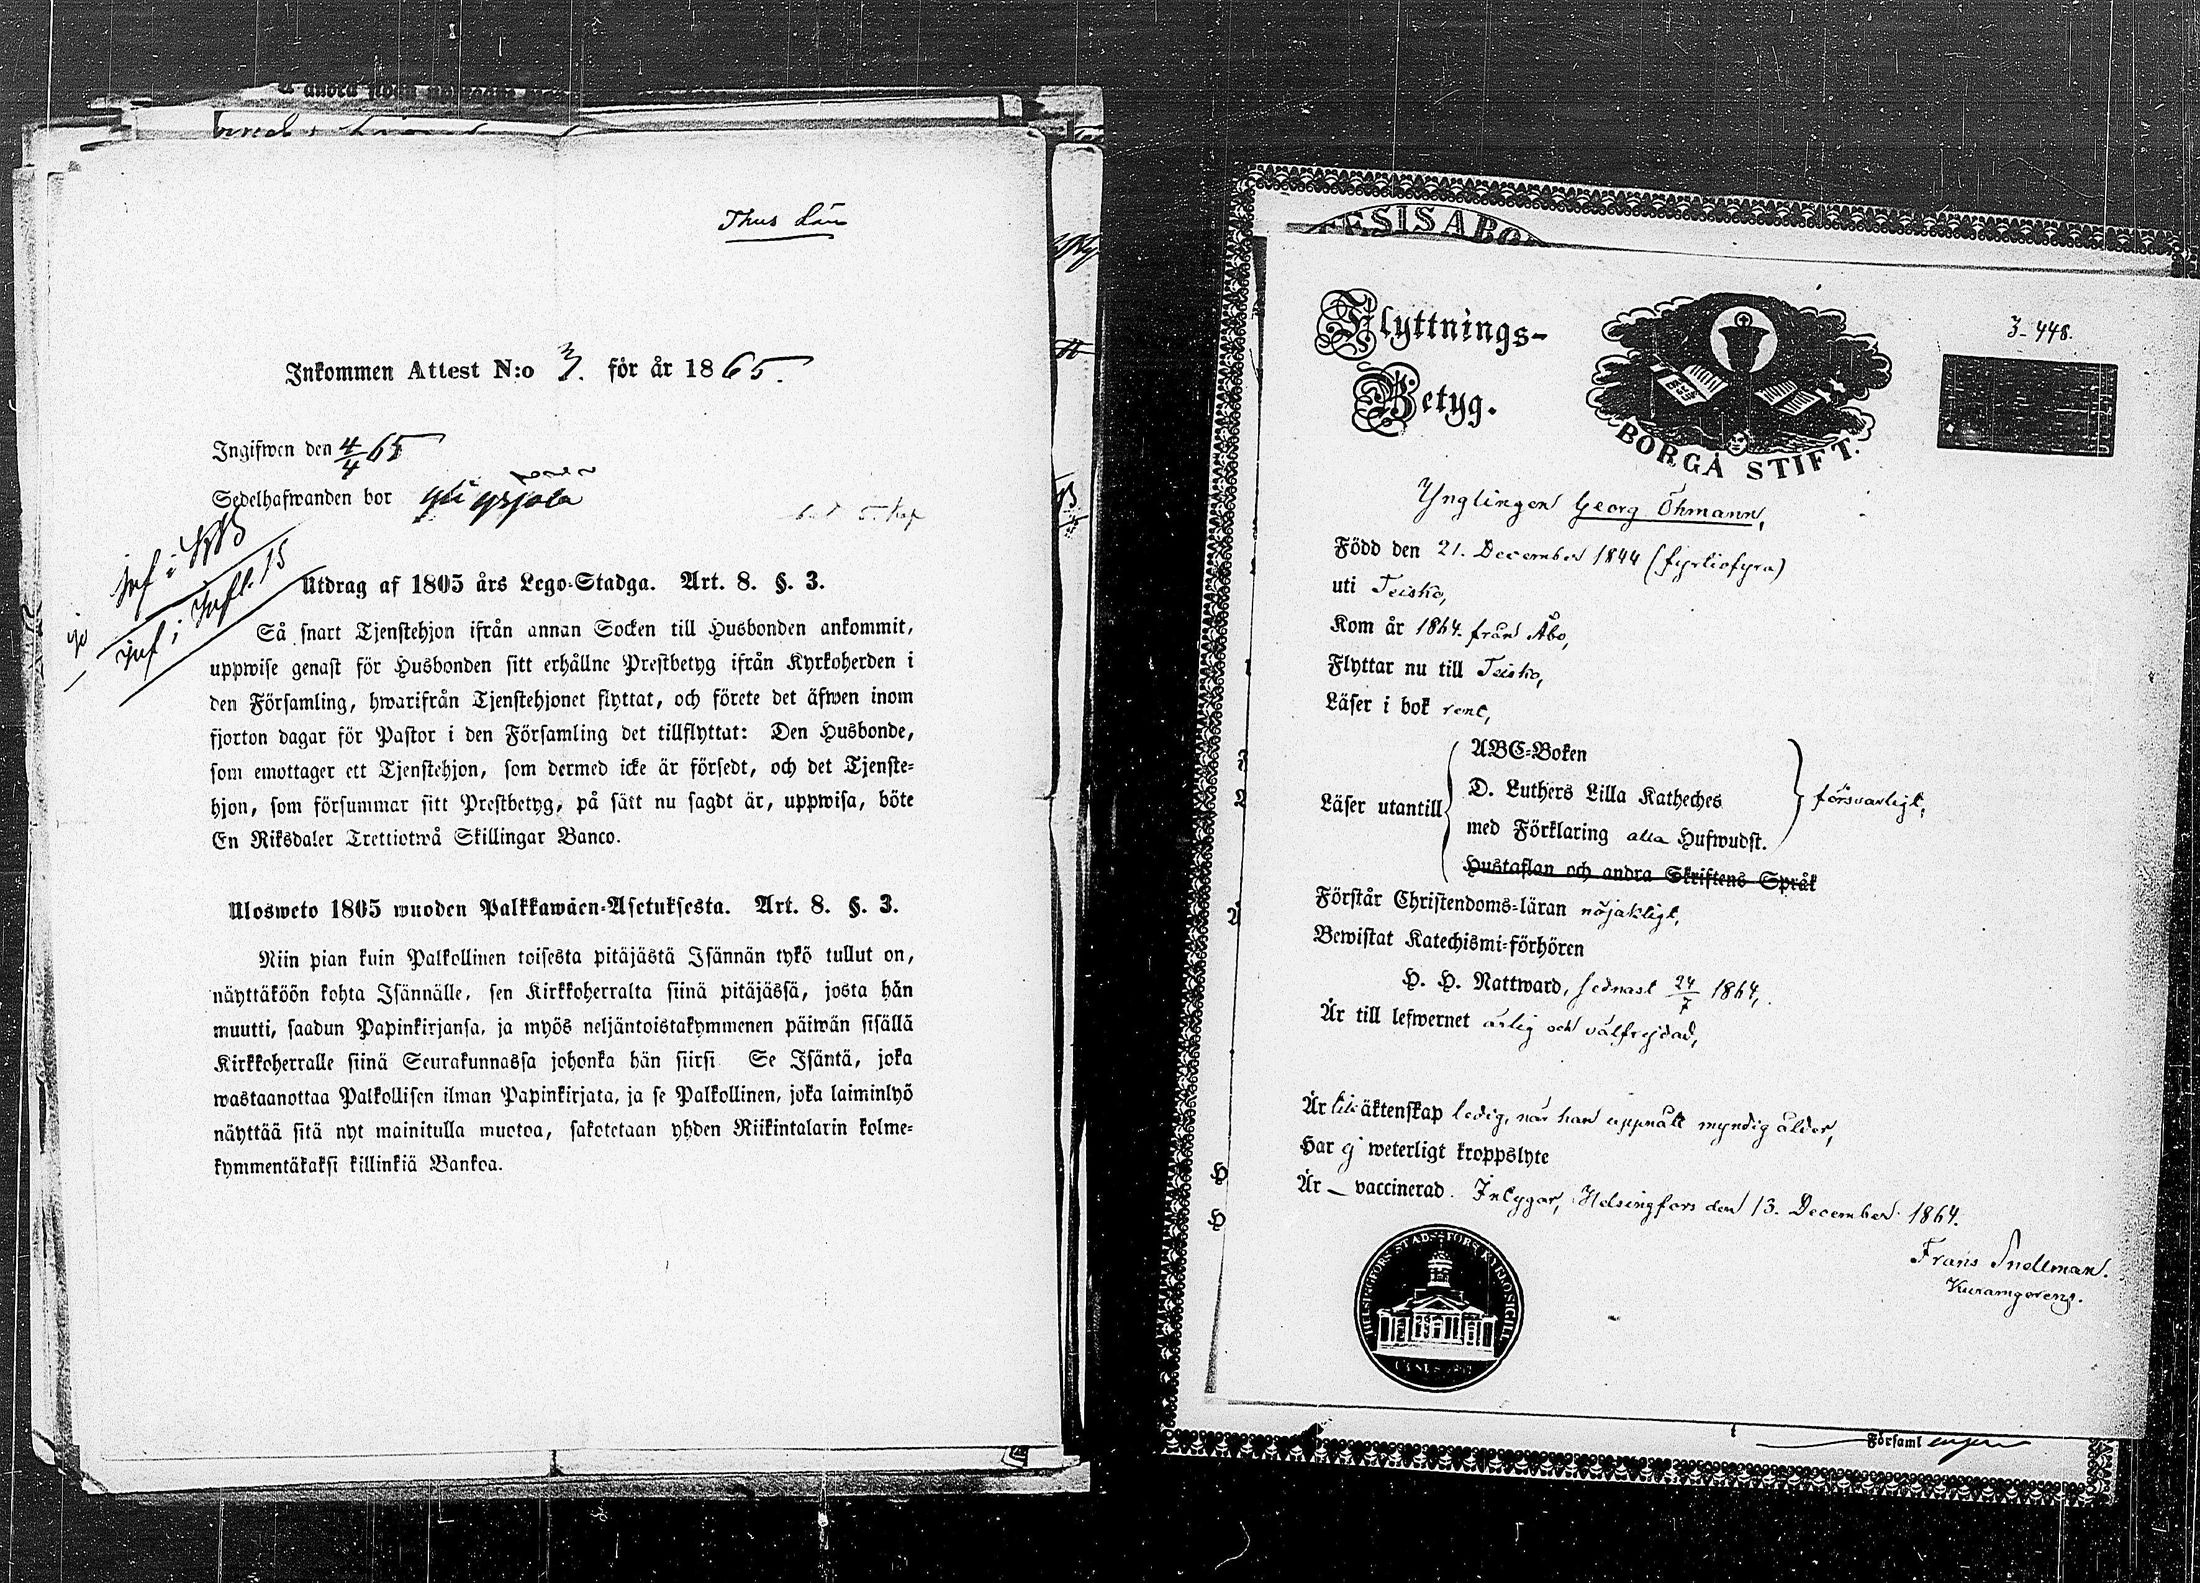 Inkommen Attest N:o 3. för år 1865.
Ingifwen den 4/4 65
Sedelhafwanden bor
Utdrag af 1805 års Lego-Stadga. Art. 8. §. 3.
Så snart Tjenstehjon ifrån annan Socken till Husbonden ankommit,
uppwise genast för Husbonden sitt erhållne Prestbetyg ifrån Kyrkoherden i
den Församling, hwarifrån Tjenstehjonet flyttat, och förete det äfwen inom
fjorton dagar för Pastor i den Församling det tillflyttat: Den Husbonde,
som emottager ett Tjenstehjon, som dermed icke är försedt, och det Tjenste-
hjon, som försummar sitt Prestbetyg, på sätt nu sagdt är, uppwisa, böte
En Riksdaler Trettiotwå Skillingar Banco.
Ulosweto 1805 wuoden Palkkawäen-Asetuksesta. Art. 8. §. 3.
Niin pian kuin Palkollinen toisesta pitäjästä Isännän tykö tullut on,
näyttäköön kohta Isännälle, sen Kirkkoherralta siinä pitäjässä, josta hän
muutti, saadun Papinkirjansa, ja myös neljäntoistakymmenen päiwän sisällä
Kirkkoherralle siinä Seurakunnassa johonka hän siirsi Se Isäntä, joka
wastaanottaa Palkollisen ilman Papinkirjata, ja se Palkollinen, joka laiminlyö
näyttää sitä nyt mainitulla muotoa, sakotetaan yhden Riikintalarin kolme-
kymmentäkaksi killinkiä Bankoa.
Flyttnings-
Betyg.
BORGÅ STIFT.
3-448.
Ynglingen Georg Öhmann,
Född den 21. December 1844 (fyrtiofyra)
uti Teisko,
Kom år 1864. från Åbo,
Flyttar nu till Teisko,
Läser i bok rent,
Läser utantill
ABC-Boken
D. Luthers Lilla Katheches
med Förklaring alla Hufwudst.
Hustaflan och andra Skriftens Språk
försvarligt,
Förstår Christendoms-läran nöjaktligt,
Bewistat Katechismi-förhören
H. H. Nattward, sednast 24/7 1864,
Är till lefwernet ärlig och välfrejdad,
Är till äktenskap ledig, när han uppnått myndig ålder,
Har ej weterligt kroppslyte
Är — vaccinerad. Intygar, Helsingfors den 13. December 1864.
Frans Snellman.
HELSINGFORS STADS KYRKOSIGILL
Församl